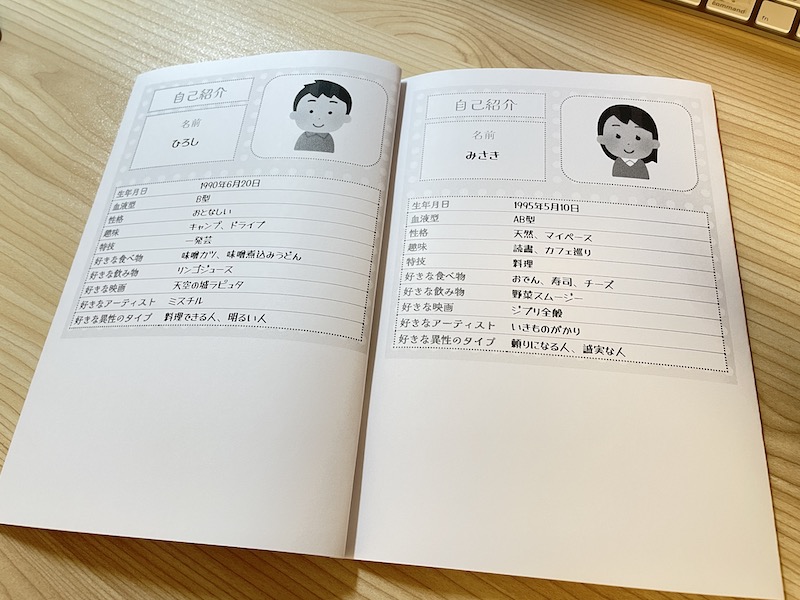 自己紹介
名前
ひろし
生年月日 1990年6月20日
血液型 B型
性格 おとなしい
趣味 キャンプ、ドライブ
特技 一発芸
好きな食べ物 味噌カツ、味噌煮込みうどん
好きな飲み物 リンゴジュース
好きな映画 天空の城ラピュタ
好きなアーティスト ミスチル
好きな異性のタイプ 料理できる人、明るい人
自己紹介
名前
みさき
生年月日 1995年5月10日
血液型 AB型
性格 天然、マイペース
趣味 読書、カフェ巡り
特技 料理
好きな食べ物 おでん、寿司、チーズ
好きな飲み物 野菜スムージー
好きな映画 ジブリ全般
好きなアーティスト いきものがかり
好きな異性のタイプ 頼りになる人、誠実な人
command
fn